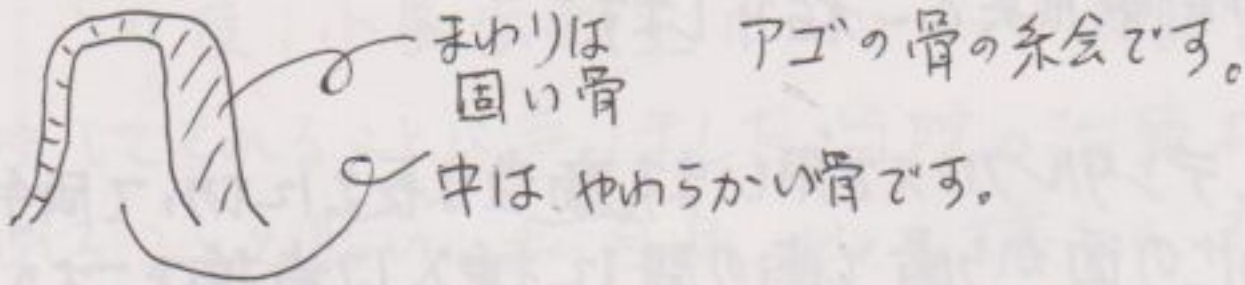 まわりは
固い骨
アゴの骨の絵です。
中は、やわらかい骨です。